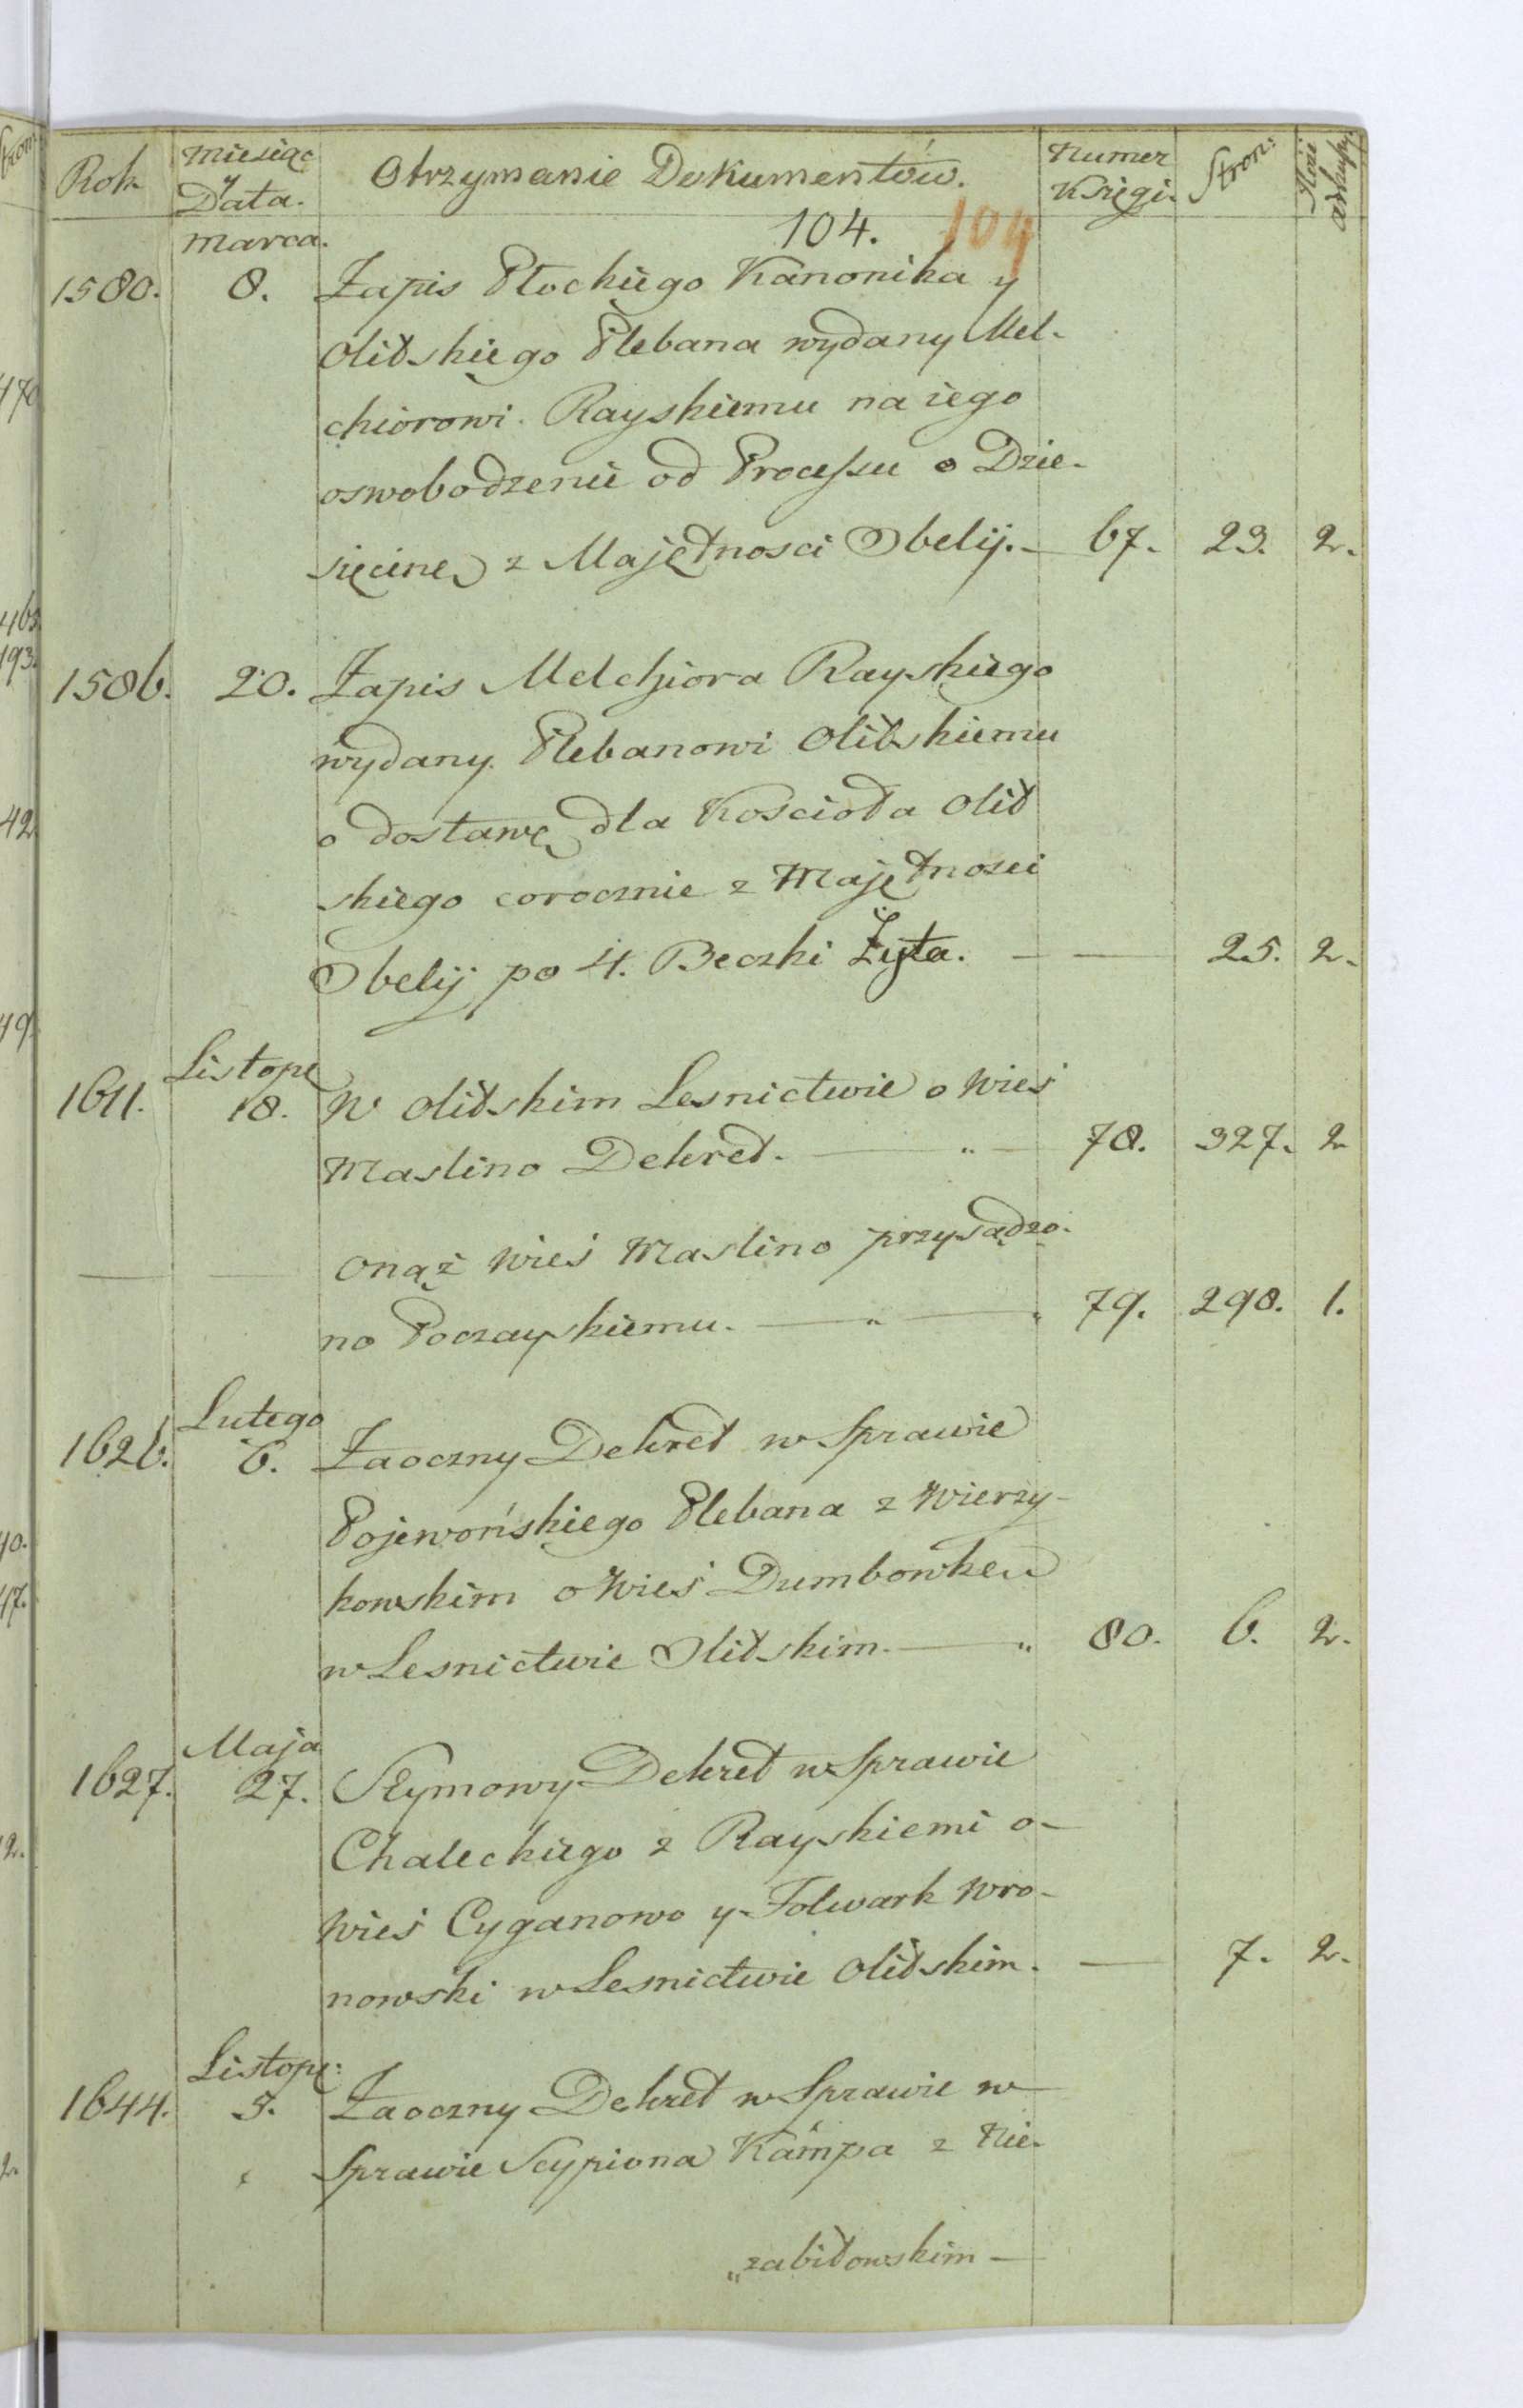 Rok Miesiąc y Data. Otrzymanie Dokumentów. Numer Księgi. Stron:
104. 104
Marca.
1580. 8. Zapis Płockiego Kanonika y
Olitskiego Plebana wydany Mel-
chiorowi Rayskiemu na iego
oswobodzenie od Processu o Dzie-
sięcinę z Majętnosci Obelij. — 67. 23. 2.
1586. 20. Zapis Melchiora Rayskiego
wydany Plebanowi Olitskiemu
o dostawę dla Koscioła Olit
skiego corocznie z Majętnosci
Obelij po 4. Beczki Żyta. — — 25. 2.
Listope
1611. 18. W Olitskim Lesnictwie o Wieś
Maslino Dekret. — „ — 78. 327. 2
— — Onąż Wieś Maslino przysądzo-
no Poczayskiemu. — „ — 79. 298. 1.
Lutego
1626. 6. Zaoczny Dekret w Sprawie
Pojewońskiego Plebana z Wierzy-
kowskim o Wieś Dumbowkę
w Lesnictwie Olitskim. — „ 80. 6. 2.
Maja
1627. 27. Seymowy Dekret w Sprawie
Chaleckiego z Rayskiemi o-
Wieś Cyganowo y Folwark Wro-
nowski w Lesnictwie Olitskim. — 7. 2.
Listope:
1644. 3. Zaoczny Dekret w Sprawie w
Sprawie Scypiona Kámpa z Nie-
„zabitowskim —